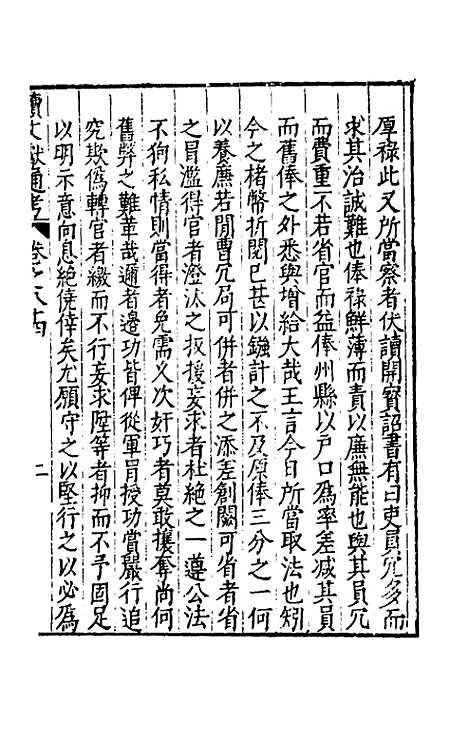 厚祿此又所當察者伏讀開寳詔書有曰吏員冗多而
求其治誠難也俸祿鮮薄而責以廉無能也與其員冗
而費重不若省官而益俸州縣以戶口為率差减其員
而舊俸之外悉與增給大哉王言今日所當取法也矧
今之楮幣折閱已甚以鏹計之不及原俸三分之一何
以養廉若閒曹冗局可併者併之添差創闕可省者省
之冒濫得官者澄汰之扳援妄求者杜絶之一遵公法
不狥私情則當得者免需乂次奸巧者莫敢攘奪尚何
舊弊之難革哉邇者邊功皆俾從軍冐授功賞嚴行追
究欺偽轉官者繳而不行妄求陞等者抑而不予固足
以明示意向息絶僥倖矣尤願守之以堅行之以必為
續文獻通考 卷之八十四 二